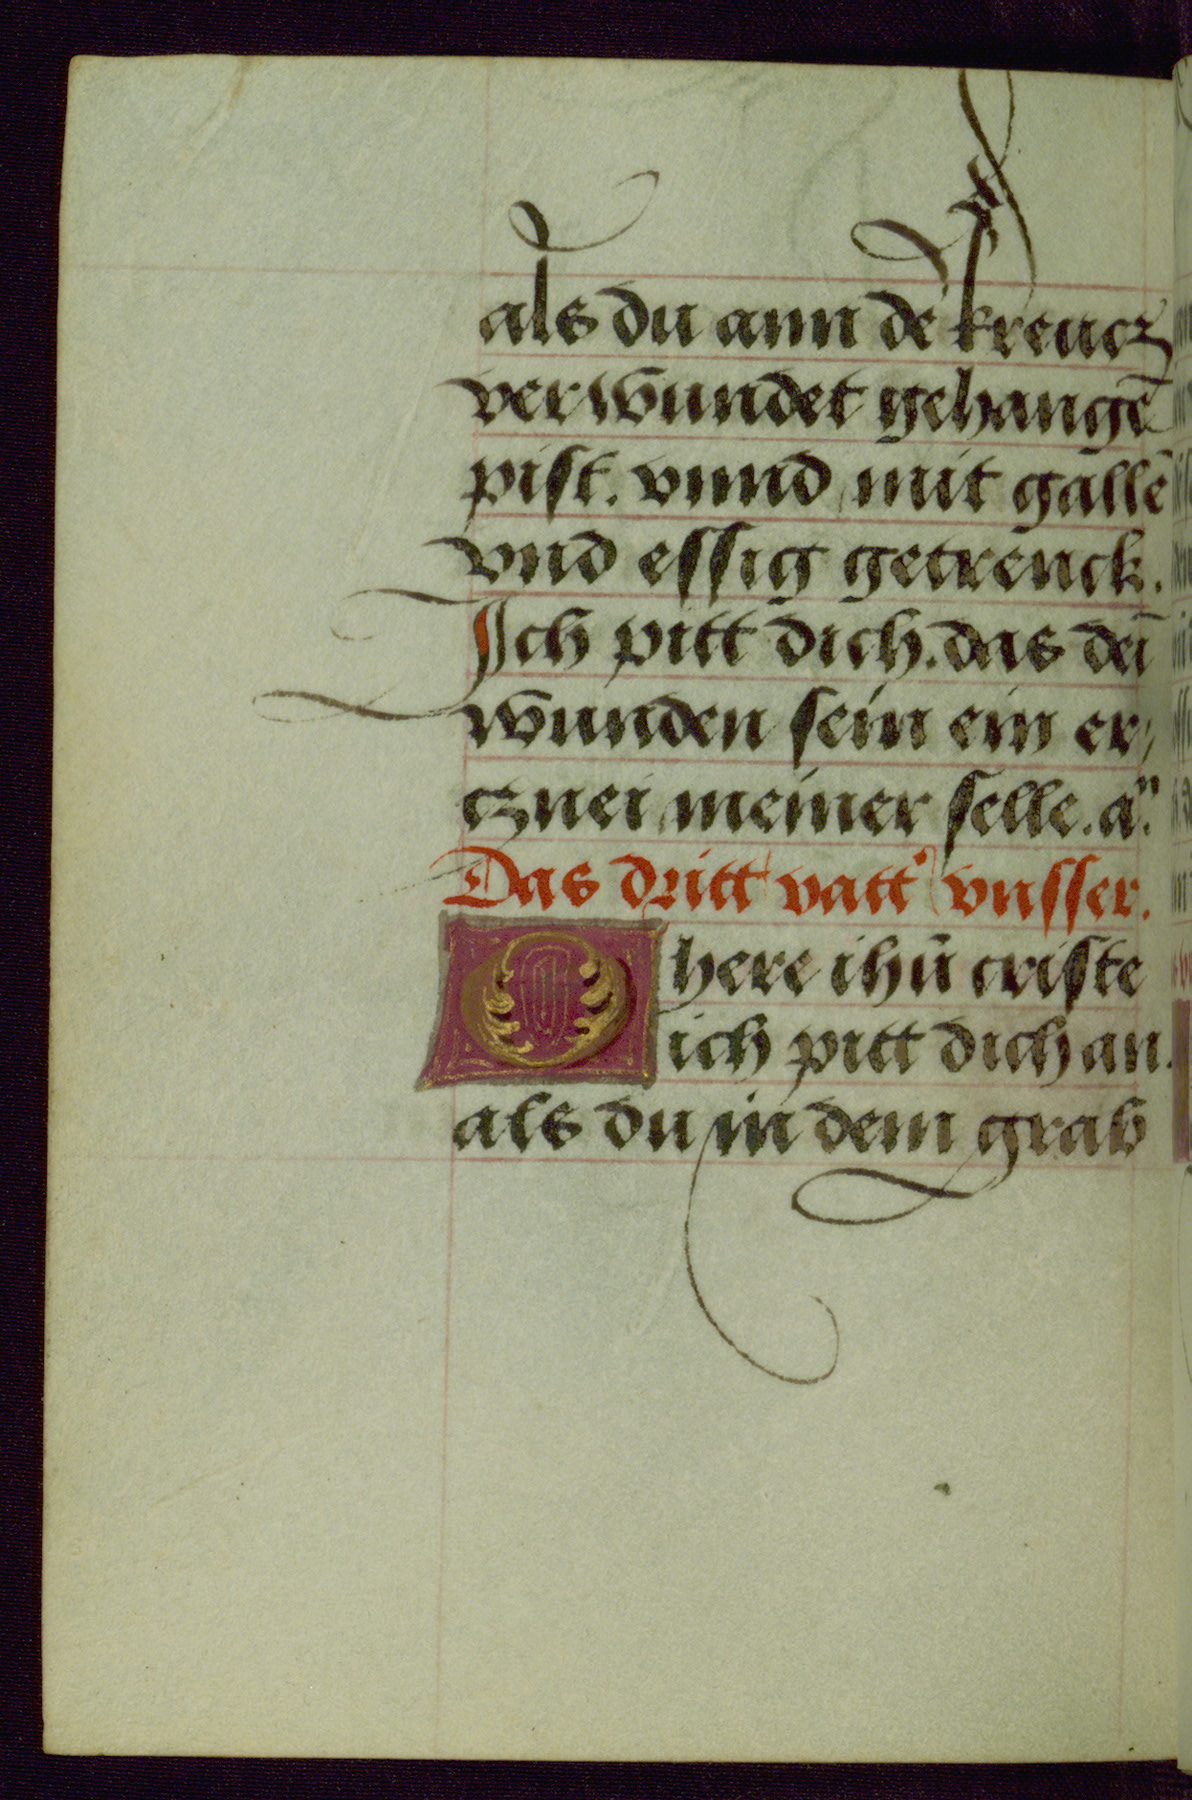 als du ann dē kreucz
verwundet gehangē
pist. vnnd mit gallē
vnd essig getrenck.
Ich pitt dich. das dei
wunden sein ein er,
cznei meiner selle. aⁿ.
Das dritt vatt' vnsser.
O here ihū criste
ich pitt dich an.
als du in dem grab